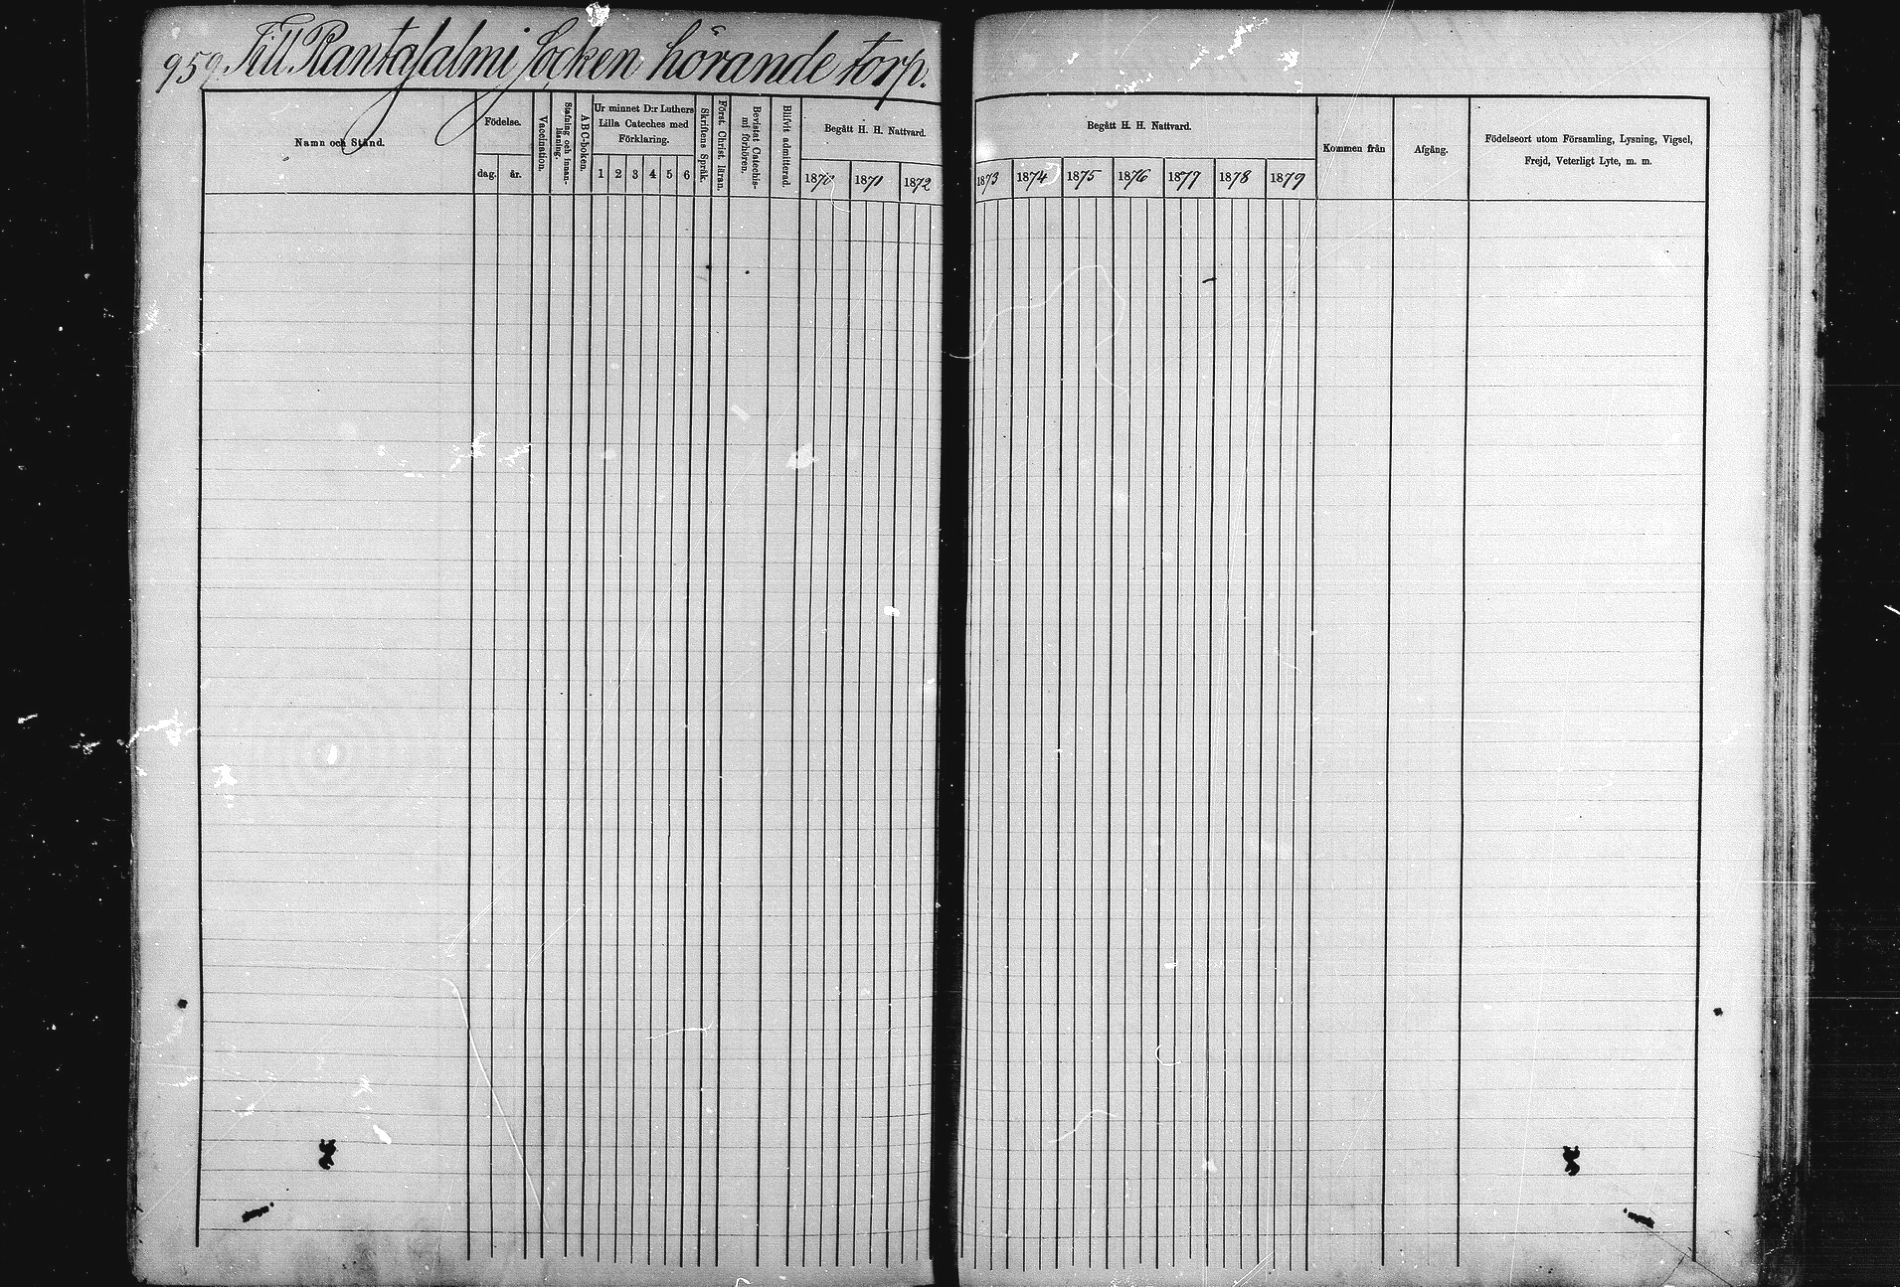 959. Till Rantasalmi Socken hörande torp.
Namn och Stånd.
Födelse.
dag.
år.
Vaccination.
Stafning och innan-
läsning.
ABC-boken.
Ur minnet D:r Luthers
Lilla Cateches med
Förklaring.
1 2 3 4 5 6
Skriftens Språk.
Först. Christ. läran.
Bevistat Catechis-
mi förhören.
Blifvit admitterad.
Begått H. H. Nattvard.
1870 1871 1872
Begått H. H. Nattvard.
1873 1874 1875 1876 1877 1878 1879
Kommen från
Afgång.
Födelseort utom Församling, Lysning, Vigsel,
Frejd, Veterligt Lyte, m. m.